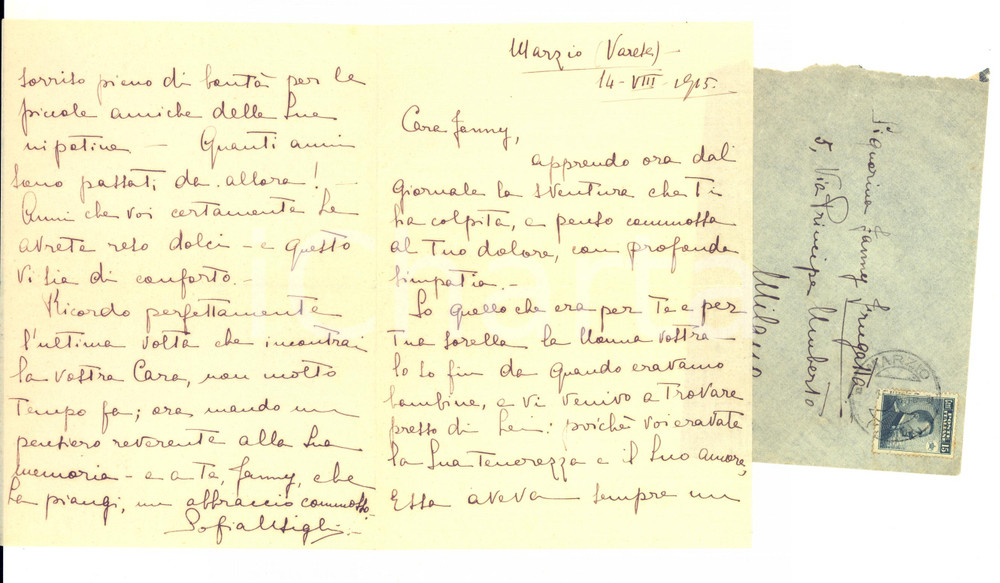 Marzio (Varese) -
14 - VIII - 1915.
Cara Fanny,
apprendo ora dal
Giornale la sventura che Ti
ha colpita, e penso commossa
al Tuo dolore, con profonda
simpatia. -
So quello che era per Te e per
Tua sorella la Nonna vostra -
lo so fin da quando eravamo
bambine, e vi venivo a Trovare
presso di Lei: poichè voi eravate
la Sua Tenerezza e il Suo Amore,
Essa aveva sempre un
sorriso pieno di bontà per le
piccole amiche delle Sue
nipotine - Quanti anni
sono passati da allora! -
Anni che voi certamente Le
avrete reso dolci - e questo
vi sia di conforto. -
Ricordo perfettamente
l'ultima volta che incontrai
la vostra Cara, non molto
Tempo fa; ora mando un
pensiero reverente alla Sua
memoria - e a te, Fanny, che
La piangi, un abbraccio commosso.
Sofia Usigli. -
Signorina Fanny
5, Via Principe Umberto
Milano
MARZIO
15